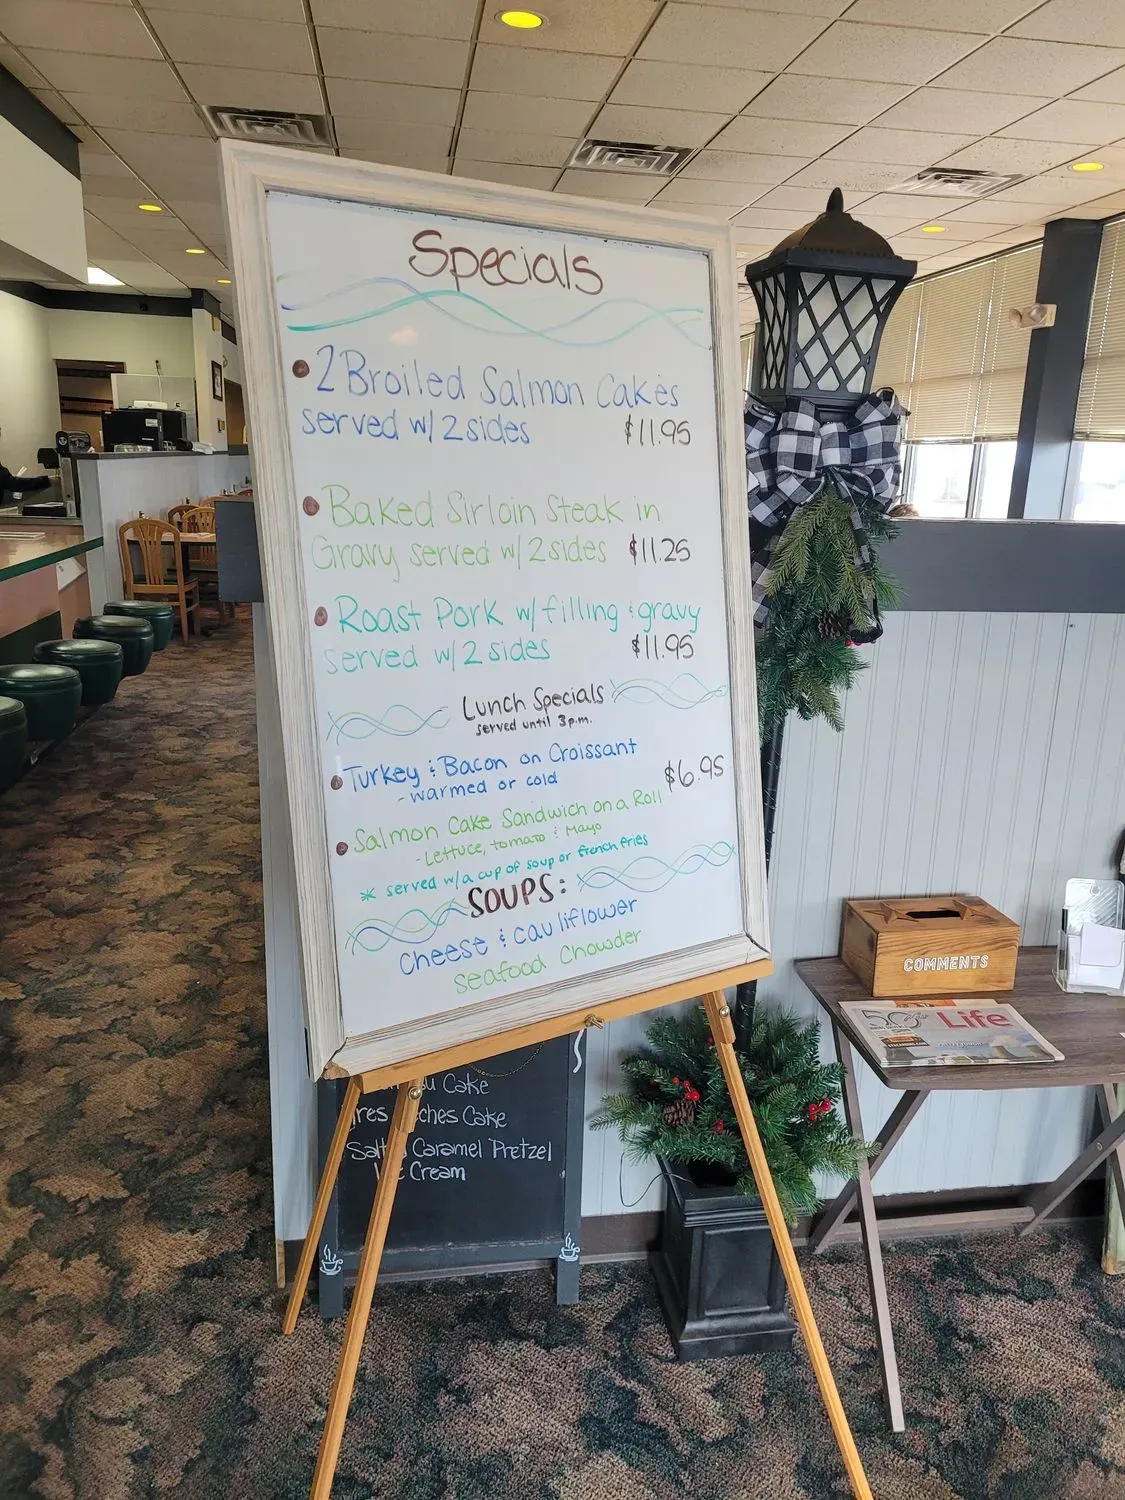 Specials
2 Broiled Salmon Cakes
served w/ 2 sides $11.95
Baked Sirloin Steak in
Gravy served w/ 2 sides $11.25
Roast Pork w/ filling & gravy
served w/ 2 sides $11.95
Lunch Specials
served until 3 p.m.
Turkey & Bacon on Croissant
- warmed or cold $6.95
Salmon Cake Sandwich on a Roll
- Lettuce, tomato & Mayo
* served w/ a cup of soup or french fries
SOUPS:
cheese & cauliflower
seafood chowder
Cake
Cake
Caramel Pretzel
Cream
COMMENTS
50 Life